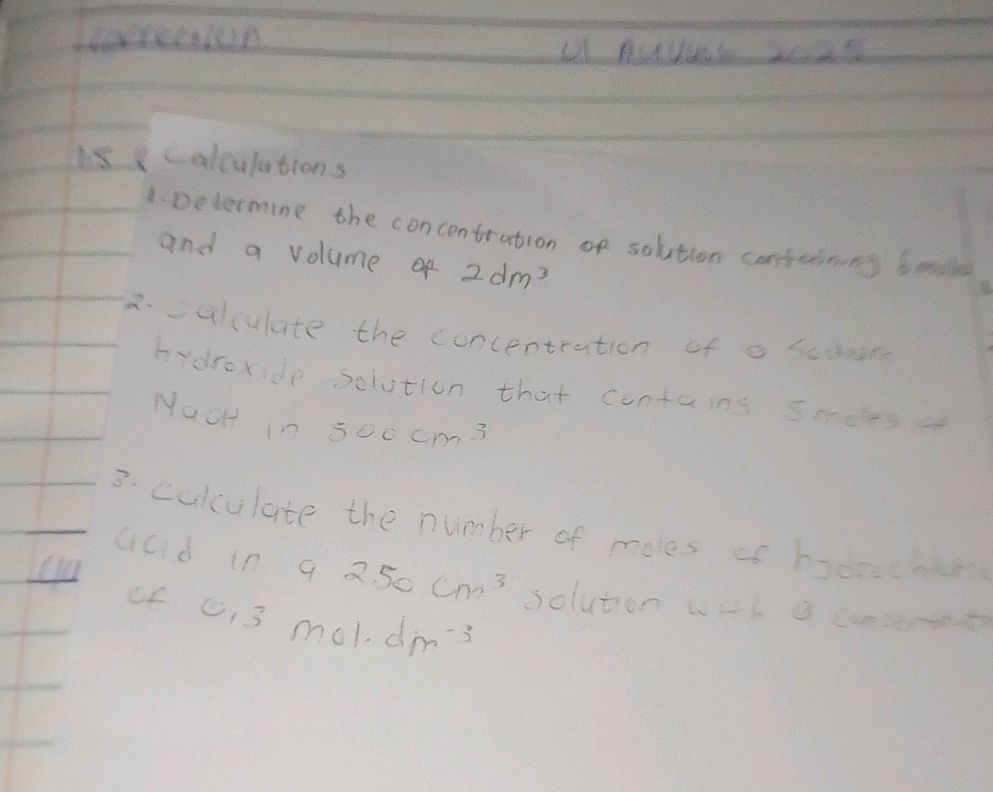 correction
01 August 2025
1.5 Calculations
1. Determine the concentration of solution containing
and a volume of 2dm³
2. Calculate the concentration of a Sodium
hydroxide solution that contains 5 moles of
NaOH in 500 cm³
3. Calculate the number of moles of hydrochloric
acid in a 250 cm³ solution with a
of 0,3 mol. dm⁻³